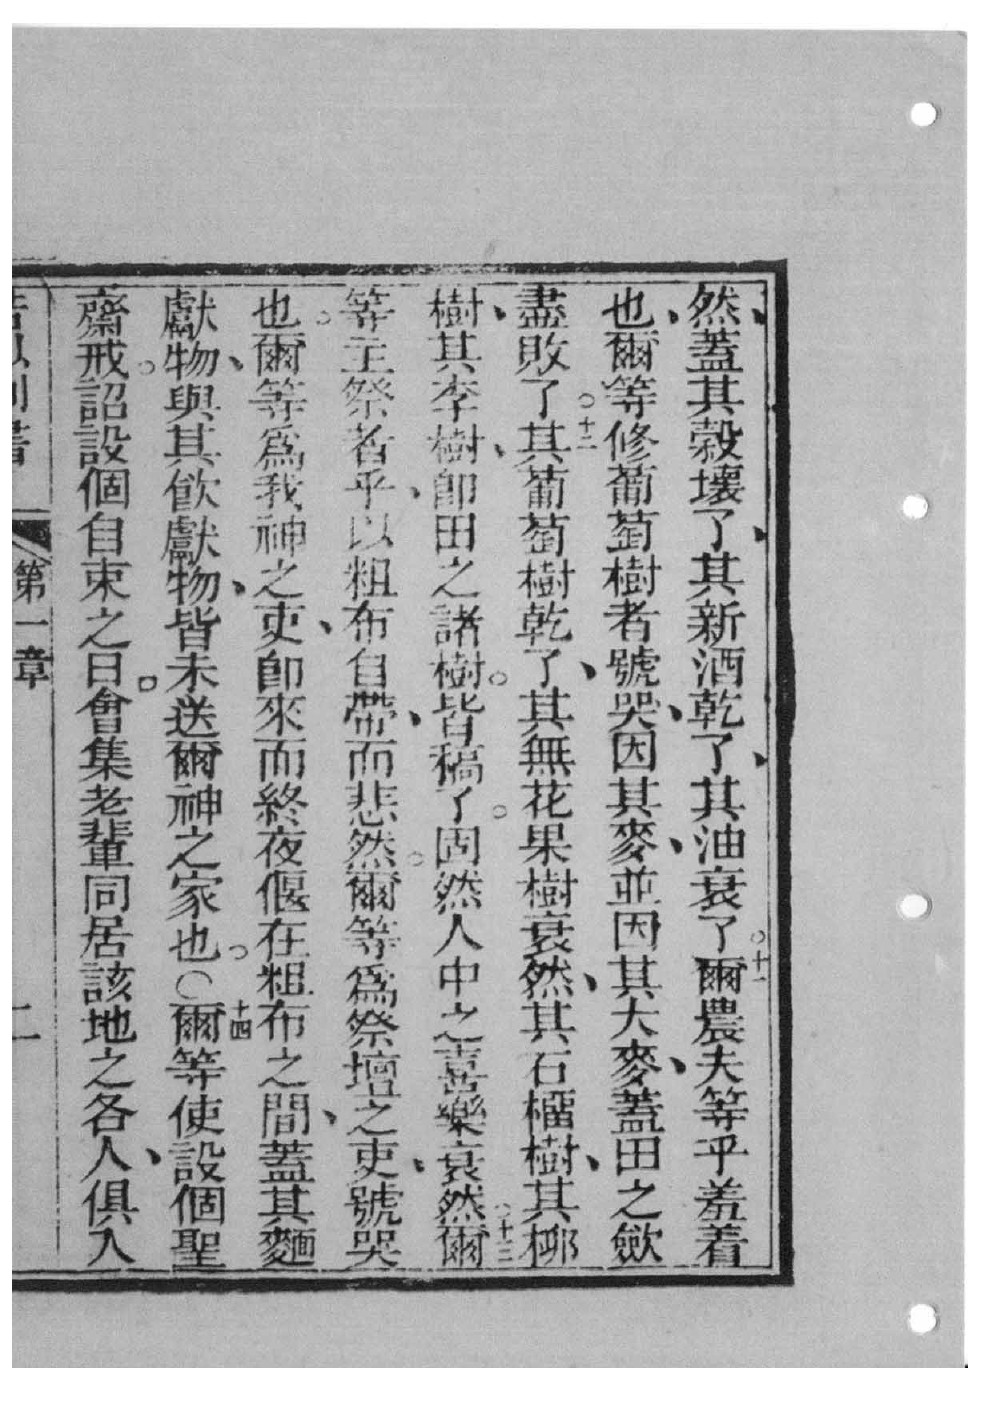 然、蓋其穀壞了、其新酒乾了、其油衰了。十一爾農夫等乎羞着
也、爾等修葡萄樹者號哭、因其麥、並因其大麥、蓋田之歛
盡敗了。十二其葡萄樹乾了、其無花果樹衰然、其石榴樹、其柳
樹、其李樹、卽田之諸樹。皆稿了。固然人中之喜樂衰然。十三爾
等主祭者乎、以粗布自帶、而悲然。爾等爲祭壇之吏、號哭
也。爾等爲我神之吏、卽來而終夜偃在粗布之間、蓋其麵
獻物、與其飮獻物、皆未送爾神之家也。○十四爾等使設個聖
齋戒。詔設個自束之日。會集老輩同居該地之各人、俱入
第一章
二